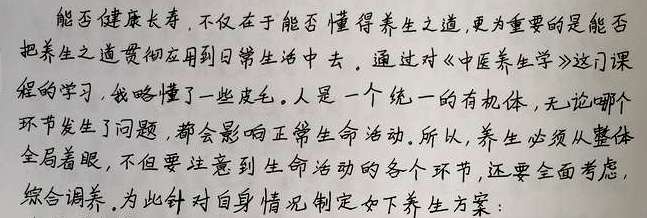 能否健康长寿，不仅在于能否懂得养生之道，更为重要的是能否
把养生之道贯彻应用到日常生活中去。通过对《中医养生学》这门课
程的学习，我略懂了一些皮毛。人是一个统一的有机体，无论哪个
环节发生了问题，都会影响正常生命活动。所以，养生必须从整体
全局着眼，不但要注意到生命活动的各个环节，还要全面考虑，
综合调养。为此针对自身情况制定如下养生方案：